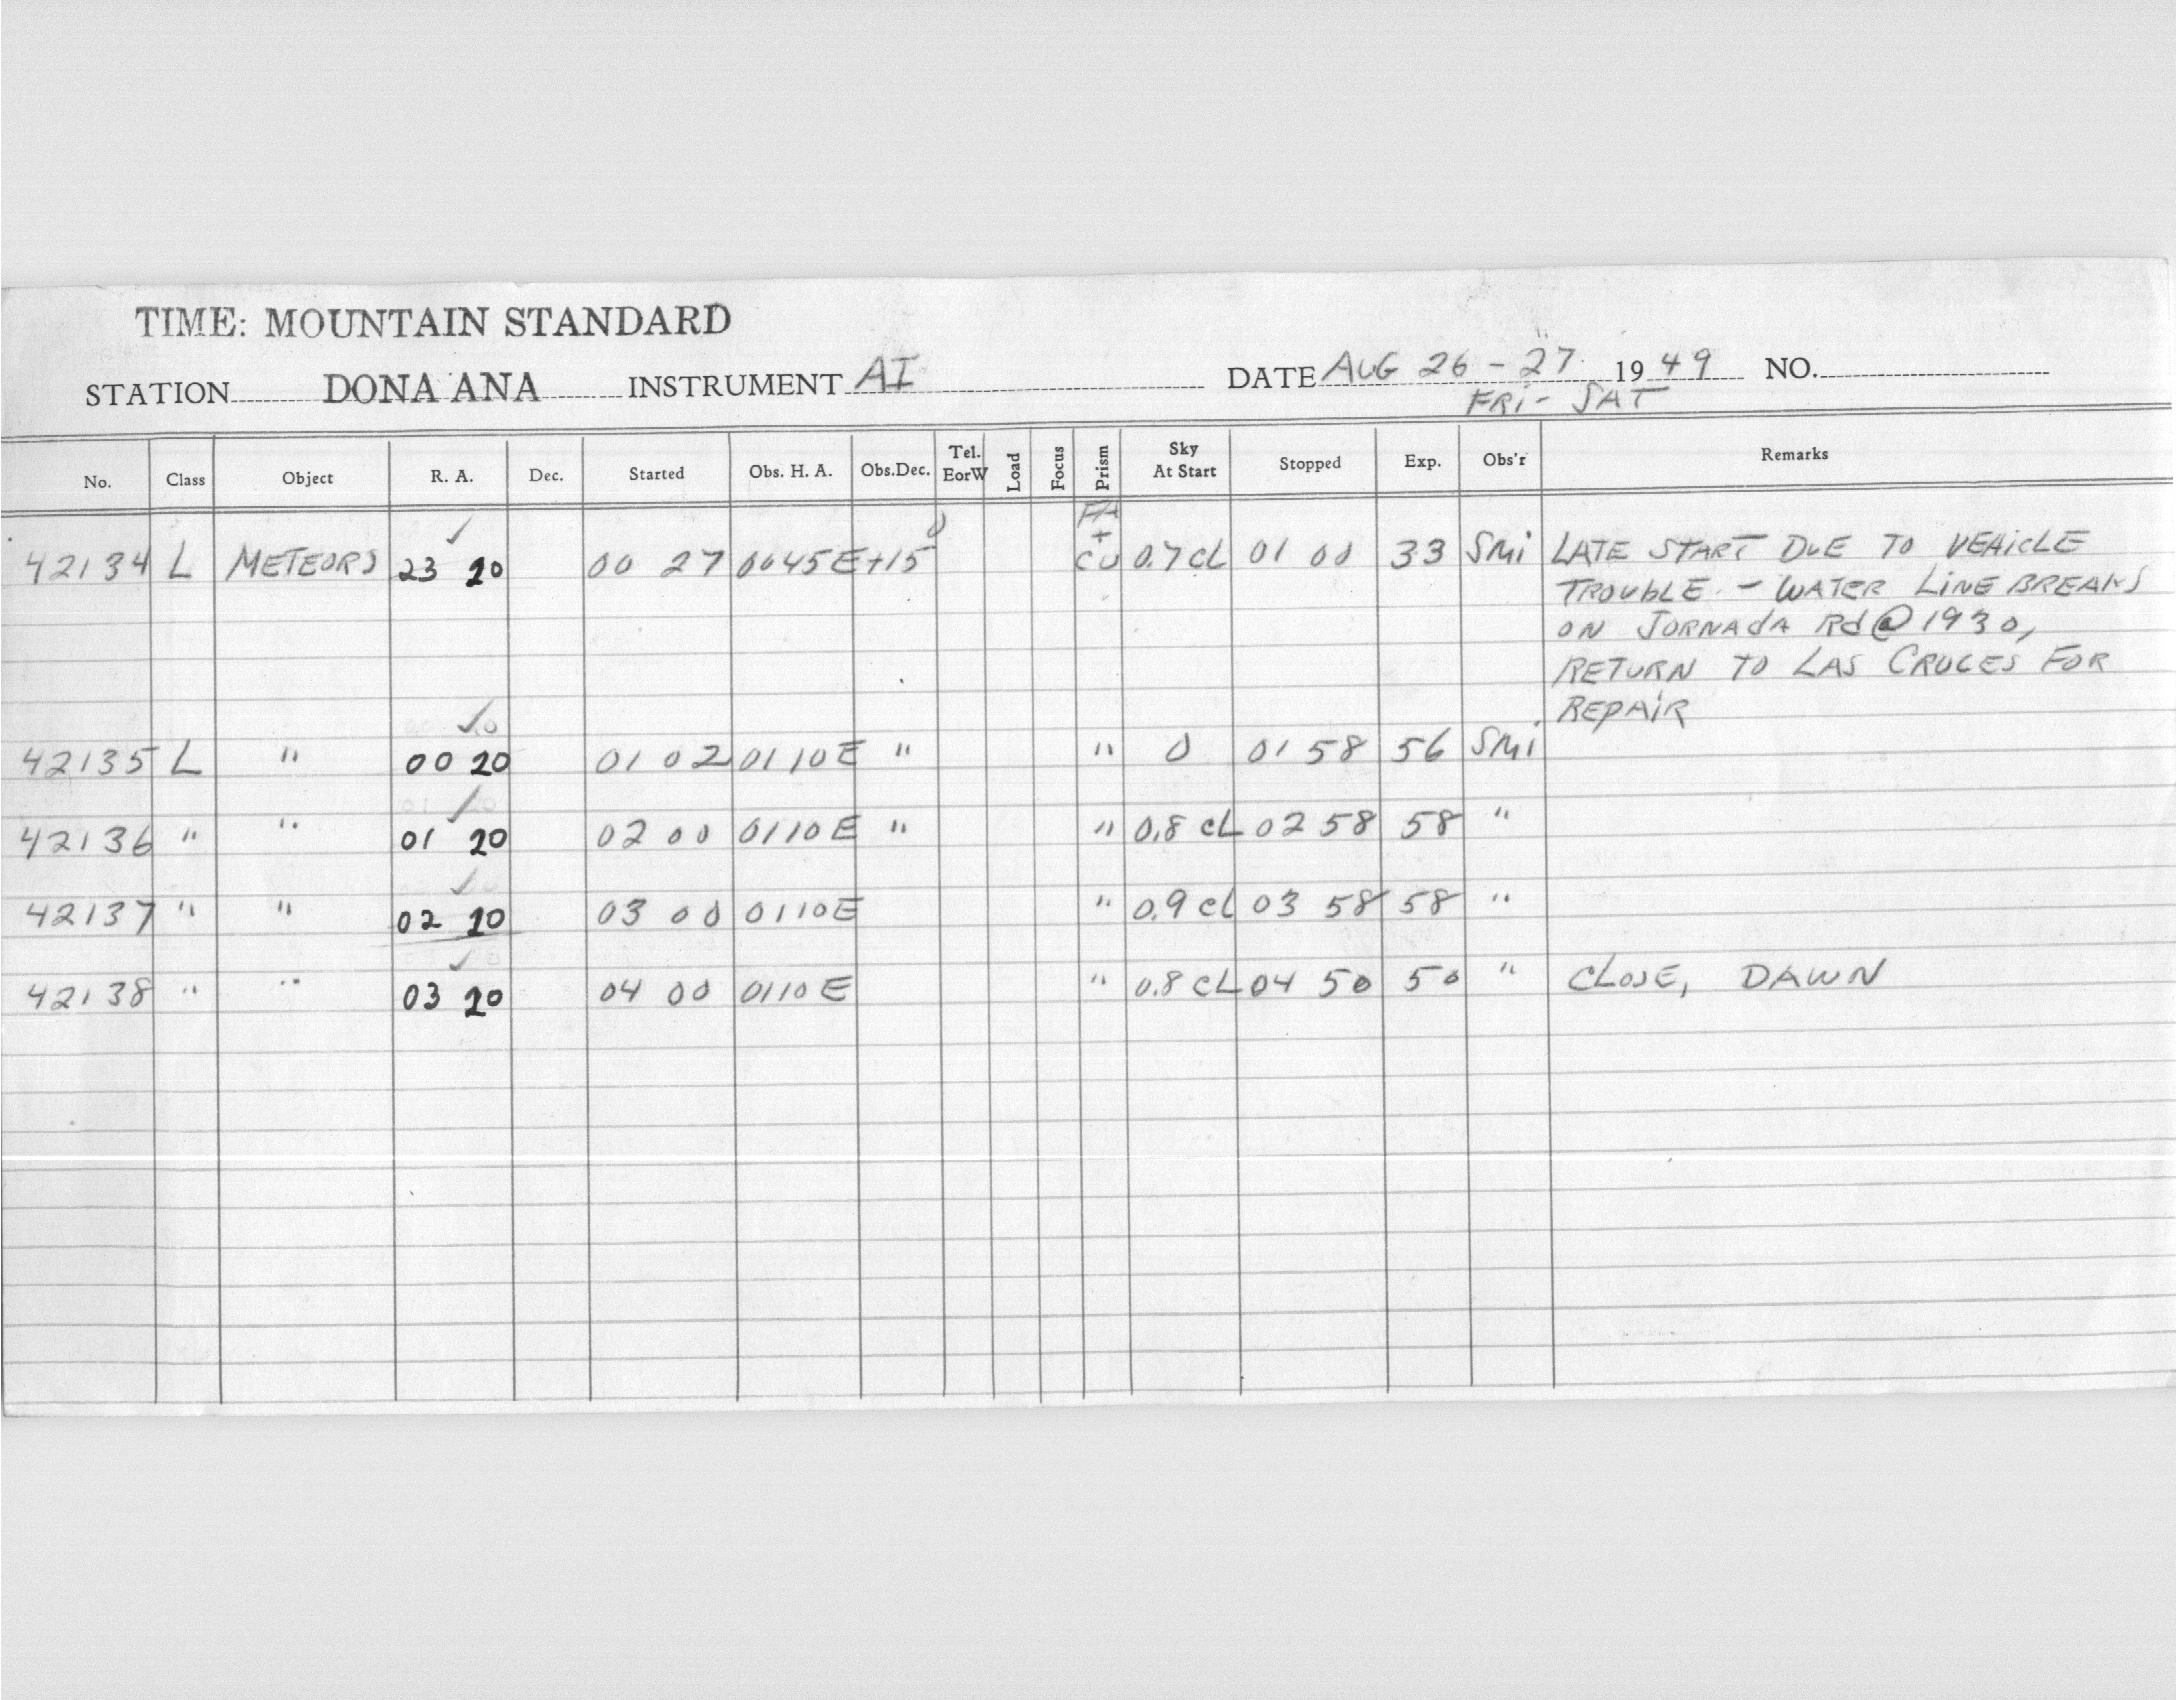 TIME: MOUNTAIN STANDARD
STATION DONA ANA INSTRUMENT AI DATE AUG 26 - 27 1949 NO.
FRI - SAT
No. Class Object R. A. Dec. Started Obs. H. A. Obs.Dec. Tel. EorW Load Focus Prism Sky At Start Stopped Exp. Obs'r Remarks
42134 L METEORS 23 20 00 27 0045E +15° + CU 0.7 CL 01 00 33 SMi LATE START DUE TO VEHICLE
TROUBLE - WATER LINE BREAKS
ON JORNADA Rd @ 1930,
RETURN TO LAS CRUCES FOR
REPAIR
42135 L " 00 20 01 02 0110E " " 0 01 58 56 SMi
42136 " " 01 20 02 00 0110E " " 0.8 CL 02 58 58 "
42137 " " 02 20 03 00 0110E " 0.9 CL 03 58 58 "
42138 " " 03 20 04 00 0110E " 0.8 CL 04 50 50 " CLOSE, DAWN